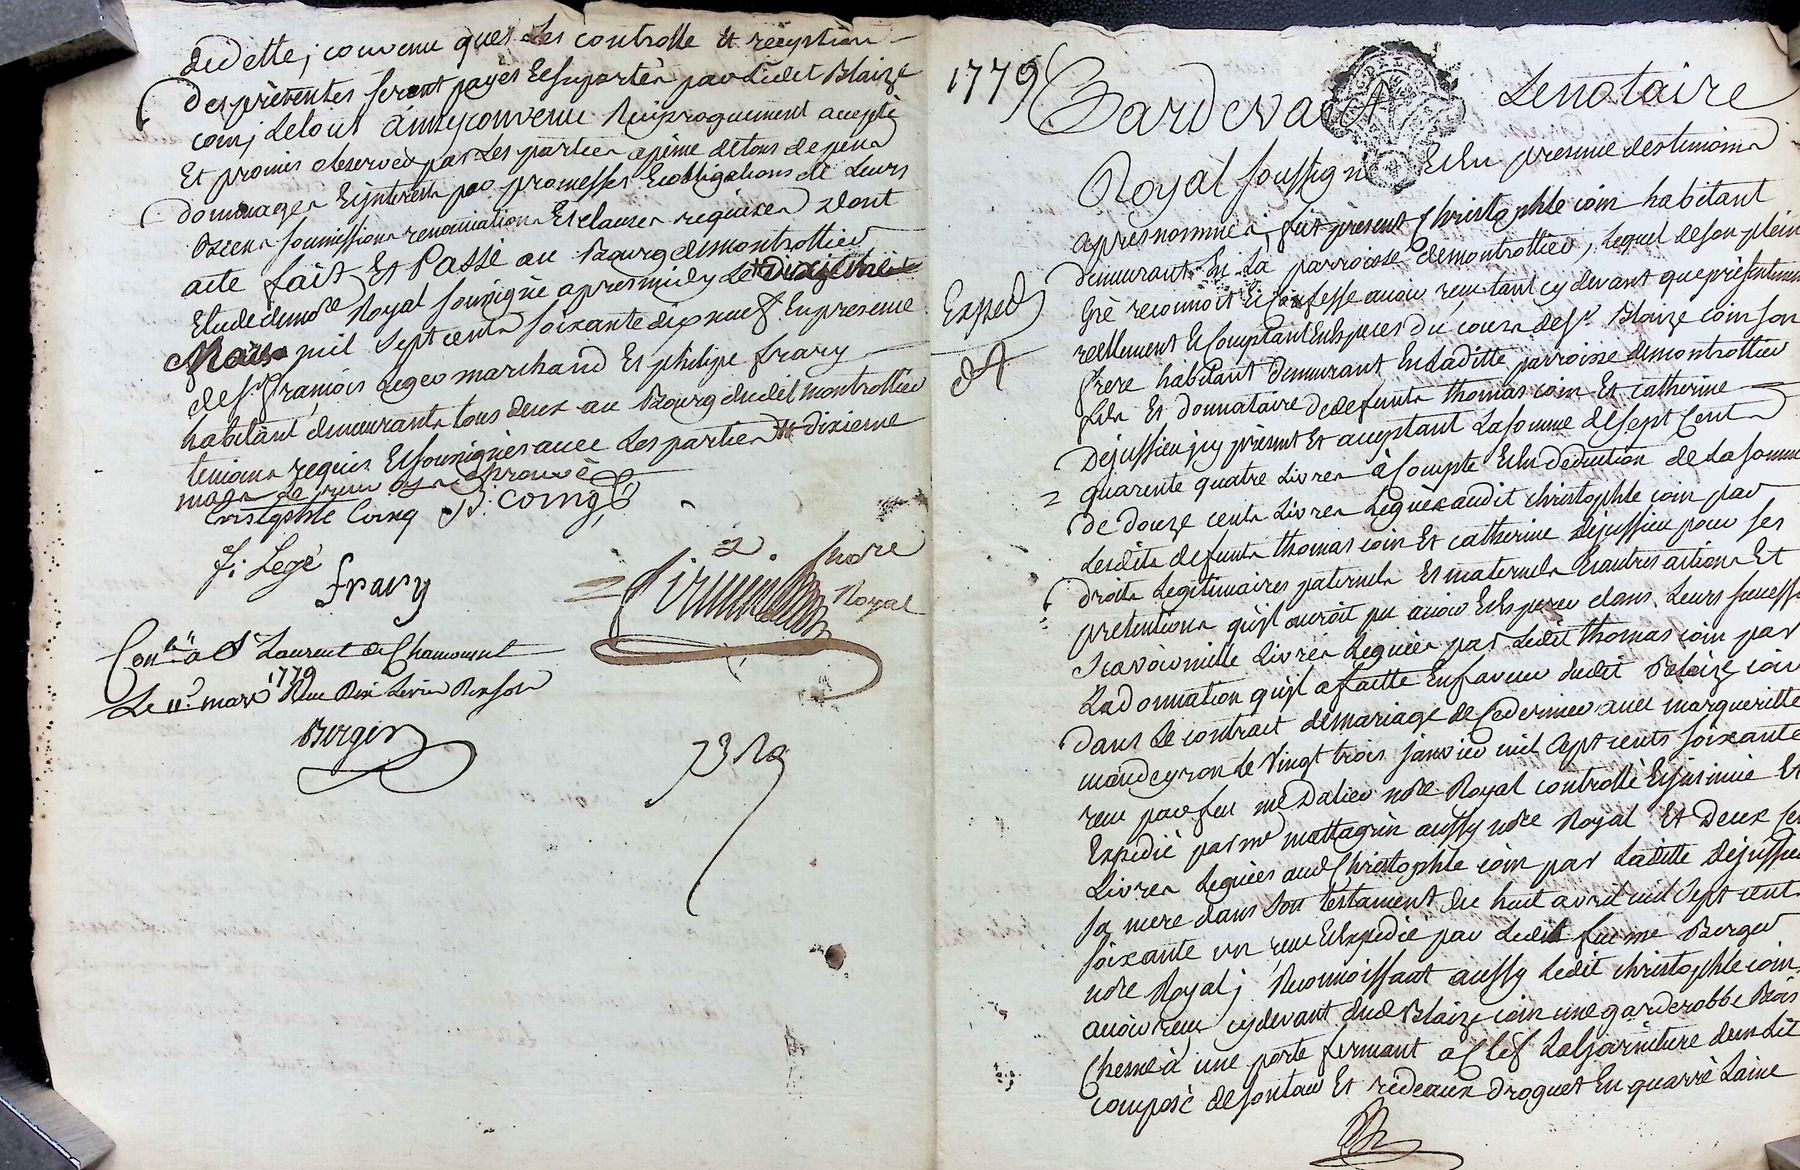 dedette, convenu que les controlle et reception
des presentes seront payés et suportés par ledit Blaize
coin, le tout ainsy convenu Reciproquement accepté
Et promis observer par les parties apeine detous depens
dommages Et interets par promesses Et obligations de Leurs
biens soumissions renonciations Et clauses requises dont
acte fait Et Passé au Bourg demontrottier
Etude dunore Royal soussigné apresmidy Le dixieme
Mars mil sept cents soixante dix neuf En presence
de sr. françois Leger marchand Et philipe frary
habitant demeurants tous deux au Bourg dudit montrottier
temoins requis Et soussignés avec Les parties dixieme
mars
Cristophle Coing B: coing
f: Legé
frary
nore
Royal
Conlé a St Laurent de Chamousset
Le 11e. mars 1779 Reçu Dix Livres Dix sols
Berger
1779
Pardevant Le notaire
Royal soussigné Et En presence destemoins
apres nommés, fut present Christophle coin habitant
demeurant En La parroisse demontrottier, Lequel deson plein
Expedé
Gré reconnoit Et Confesse avoir reçu tant cy devant que présentement
reellement Et Comptant En Especes du cours de sr. Blaize coin son
frere habitant demeurant En Laditte parroisse demontrottier
fils Et donnataire dedefunts thomas coin Et catherine
Dejussieu icy present Et acceptant La somme de sept Cents
quarente quatre Livres à Compte Et En deduction de La somme
de douze cents Livres Leguées audit christophle coin par
Lesdits defunts thomas coin Et catherine Dejussieu pour ses
droits Legitimaires paternels Et maternels Et autres actions Et
pretentions qu'il auroit pu avoir Et Esperer dans Leurs success
scavoir mille Livres Leguées par Ledit thomas coin par
La donnation qu'il a faitte En faveur dudit Blaize coin
dans Le contrat demariage de Cedernier avec margueritte
mondeyron de Vingt trois janvier mil sept cents soixante
reçu par feu me Dalier nore Royal controllé Et insinué Et
Expedié par me mattagrin aussy nore Royal Et deux ce
Livres Leguées aud Christophle coin par Laditte dejussieu
sa mere dans son testament du huit avril mil sept cents
soixante un reçu Et Expedié par Ledit feu me Berger
nore Royal; Reconnoissant aussy Ledit christophle coin
avoir reçu cy devant dud Blaize coin une garderobbe Bois
Chesne à une porte fermant a Clef La garniture dun Lit
composé desontour Et rideaux droguet En quarré Laine